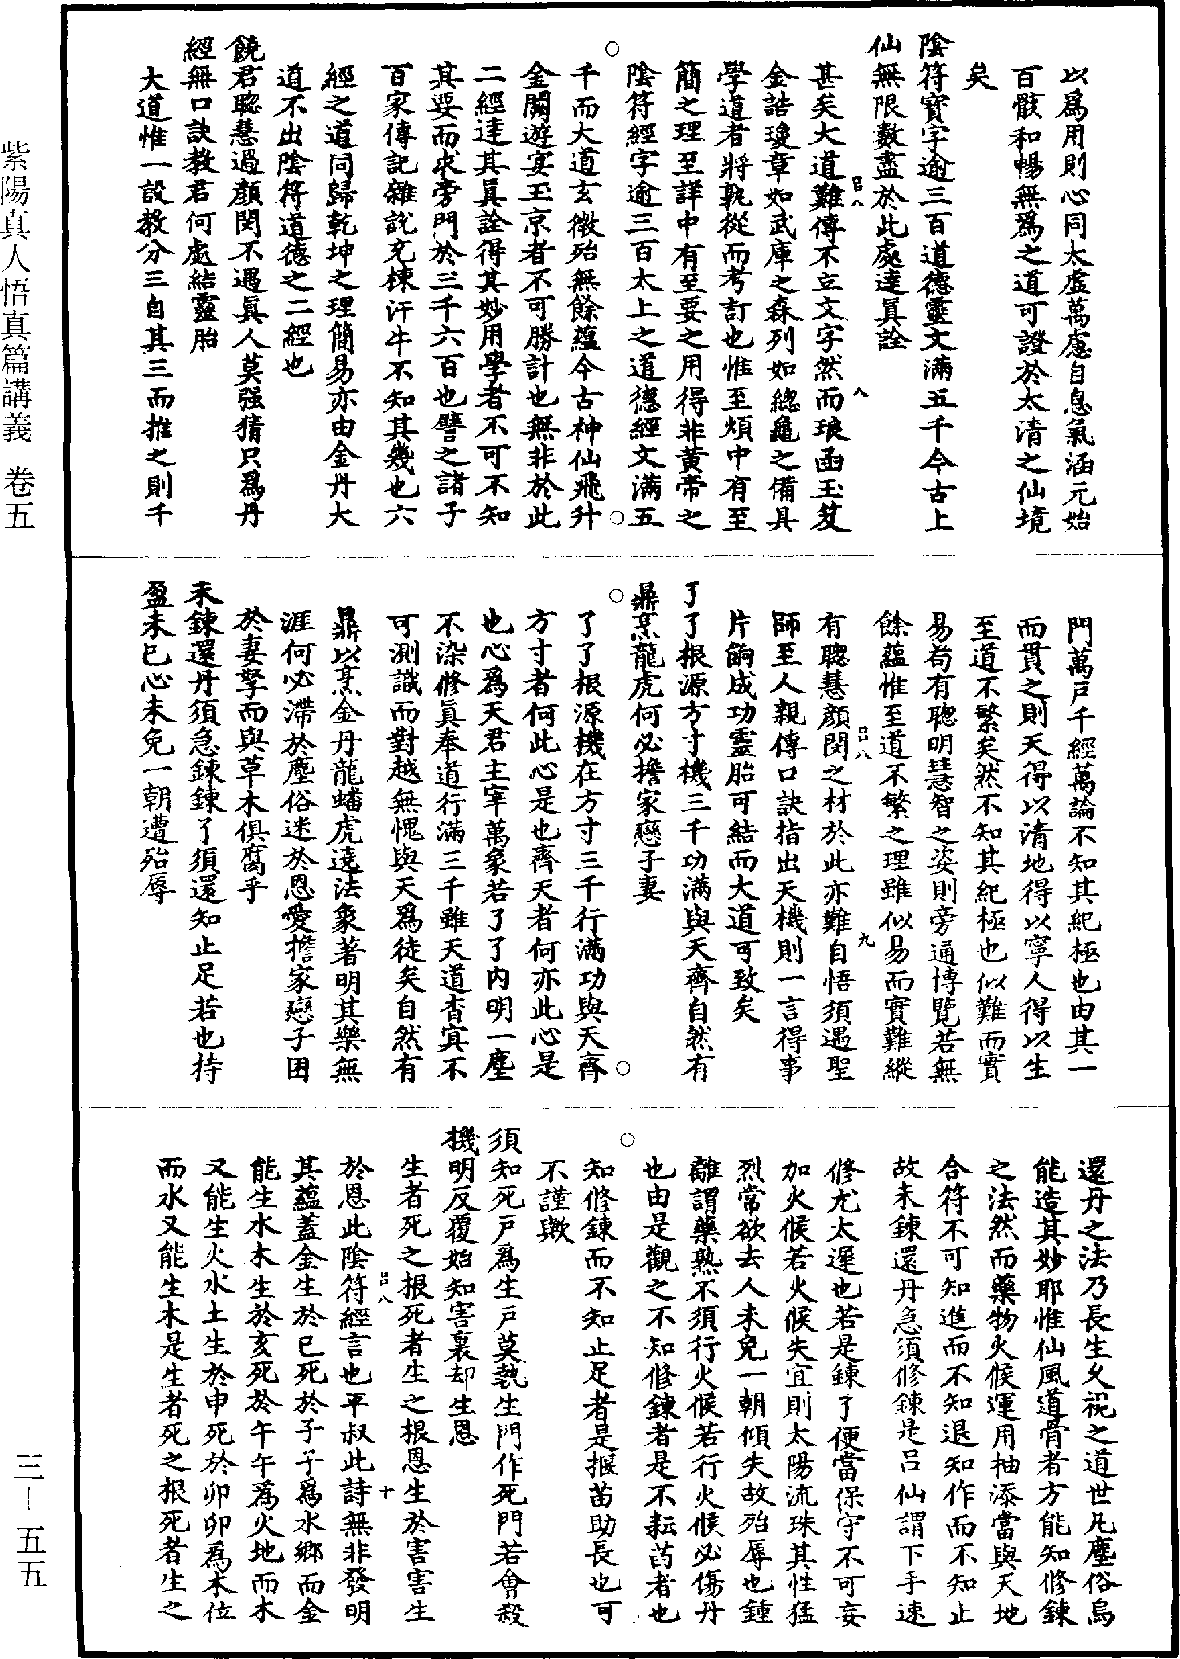 以為用則心同太虛萬慮自息氣涵元始
百骸和暢無為之道可證於太清之仙境
矣
陰符寶字逾三百道德靈文滿五千今古上
仙無限數盡於此處達眞詮
甚矣大道難傳不立文字然而琅函玉笈
金誥瓊章如武庫之森列如總龜之備具
學道者將孰從而考訂也惟至煩中有至
簡之理至詳中有至要之用得非黃帝之
陰符經字逾三百太上之道德經文滿五
千而大道玄微殆無餘蘊今古神仙飛升
金闕遊宴玉京者不可勝計也無非於此
二經達其眞詮得其妙用學者不可不知
其要而求旁門於三千六百也譬之諸子
百家傳記雜說充棟汗牛不知其幾也六
經之道同歸乾坤之理簡易亦由金丹大
道不出陰符道德之二經也
饒君聰慧過顏閔不遇眞人莫强猜只為丹
經無口訣教君何處結靈胎
大道惟一設教分三自其三而推之則千
門萬戶千經萬論不知其紀極也由其一
而貫之則天得以清地得以寧人得以生
至道不繁矣然不知其紀極也似難而實
易苟有聰明㤗慧智之姿則旁通博覽若無
餘蘊惟至道不繁之理雖似易而實難縱
有聰慧顏閔之材於此亦難自悟須遇聖
師至人親傳口訣指出天機則一言得事
片餉成功靈胎可結而大道可致矣
了了根源方寸機三千功滿與天齊自然有
鼎烹龍虎何必擔家戀子妻
了了根源機在方寸三千行滿功與天齊
方寸者何此心是也齊天者何亦此心是
也心為天君主宰萬象若了了內明一塵
不染修眞奉道行滿三千雖天道杳冥不
可測識而對越無愧與天為徒矣自然有
鼎以烹金丹龍蟠虎遶法象著明其樂無
涯何必滯於塵俗迷於恩愛擔家戀子困
於妻孥而與草木俱腐乎
未鍊還丹須急鍊鍊了須還知止足若也持
盈未已心未免一朝遭殆辱
還丹之法乃長生久視之道世凡塵俗烏
能造其妙耶惟仙風道骨者方能知修鍊
之法然而藥物火候運用抽添當與天地
合符不可知進而不知退知作而不知止
故未鍊還丹急須修鍊是呂仙謂下手速
修尤太遲也若是鍊了便當保守不可妄
加火候若火候失宜則太陽流珠其性猛
烈常欲去人未免一朝傾失故殆辱也鍾
離謂藥熟不須行火候若行火候必傷丹
也由是觀之不知修鍊者是不耘苗者也
知修鍊而不知止足者是揠苗助長也可
不謹歟
須知死戶為生戶莫執生門作死門若會殺
機明反覆始知害裏却生恩
生者死之根死者生之根恩生於害害生
於恩此陰符經言也平叔此詩無非發明
其蘊蓋金生於巳死於子子為水鄉而金
能生水木生於亥死於午午為火地而木
又能生火水土生於申死於卯卯為木位
而水又能生木是生者死之根死者生之
呂八
八
呂八
九
呂八
十
紫陽真人悟真篇講義 卷五
三—五五